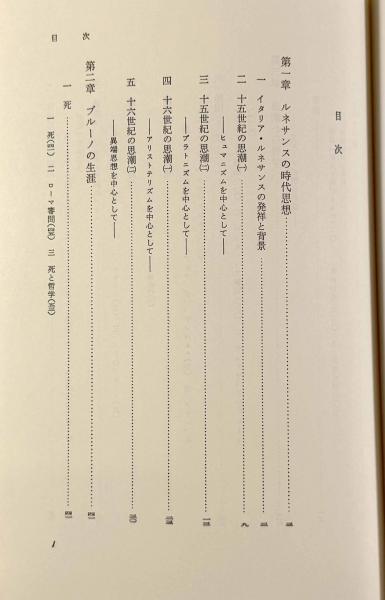 目次
第一章 ルネサンスの時代思想……三
一 イタリア・ルネサンスの発祥と背景……三
二 十五世紀の思潮(一)……九
——ヒュマニズムを中心として——
三 十五世紀の思潮(二)……一三
——プラトニズムを中心として——
四 十六世紀の思潮(一)
——アリストテリズムを中心として——
五 十六世紀の思潮(二)……三〇
——異端思想を中心として——
第二章 ブルーノの生涯……四一
一 死……四一
一 死(四一) 二 ローマ審問 三 死と哲学
目次
1